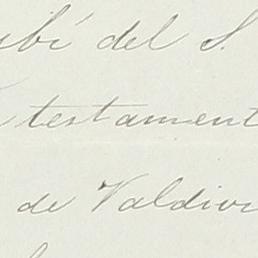 ibí del S
testament
de Valdivi